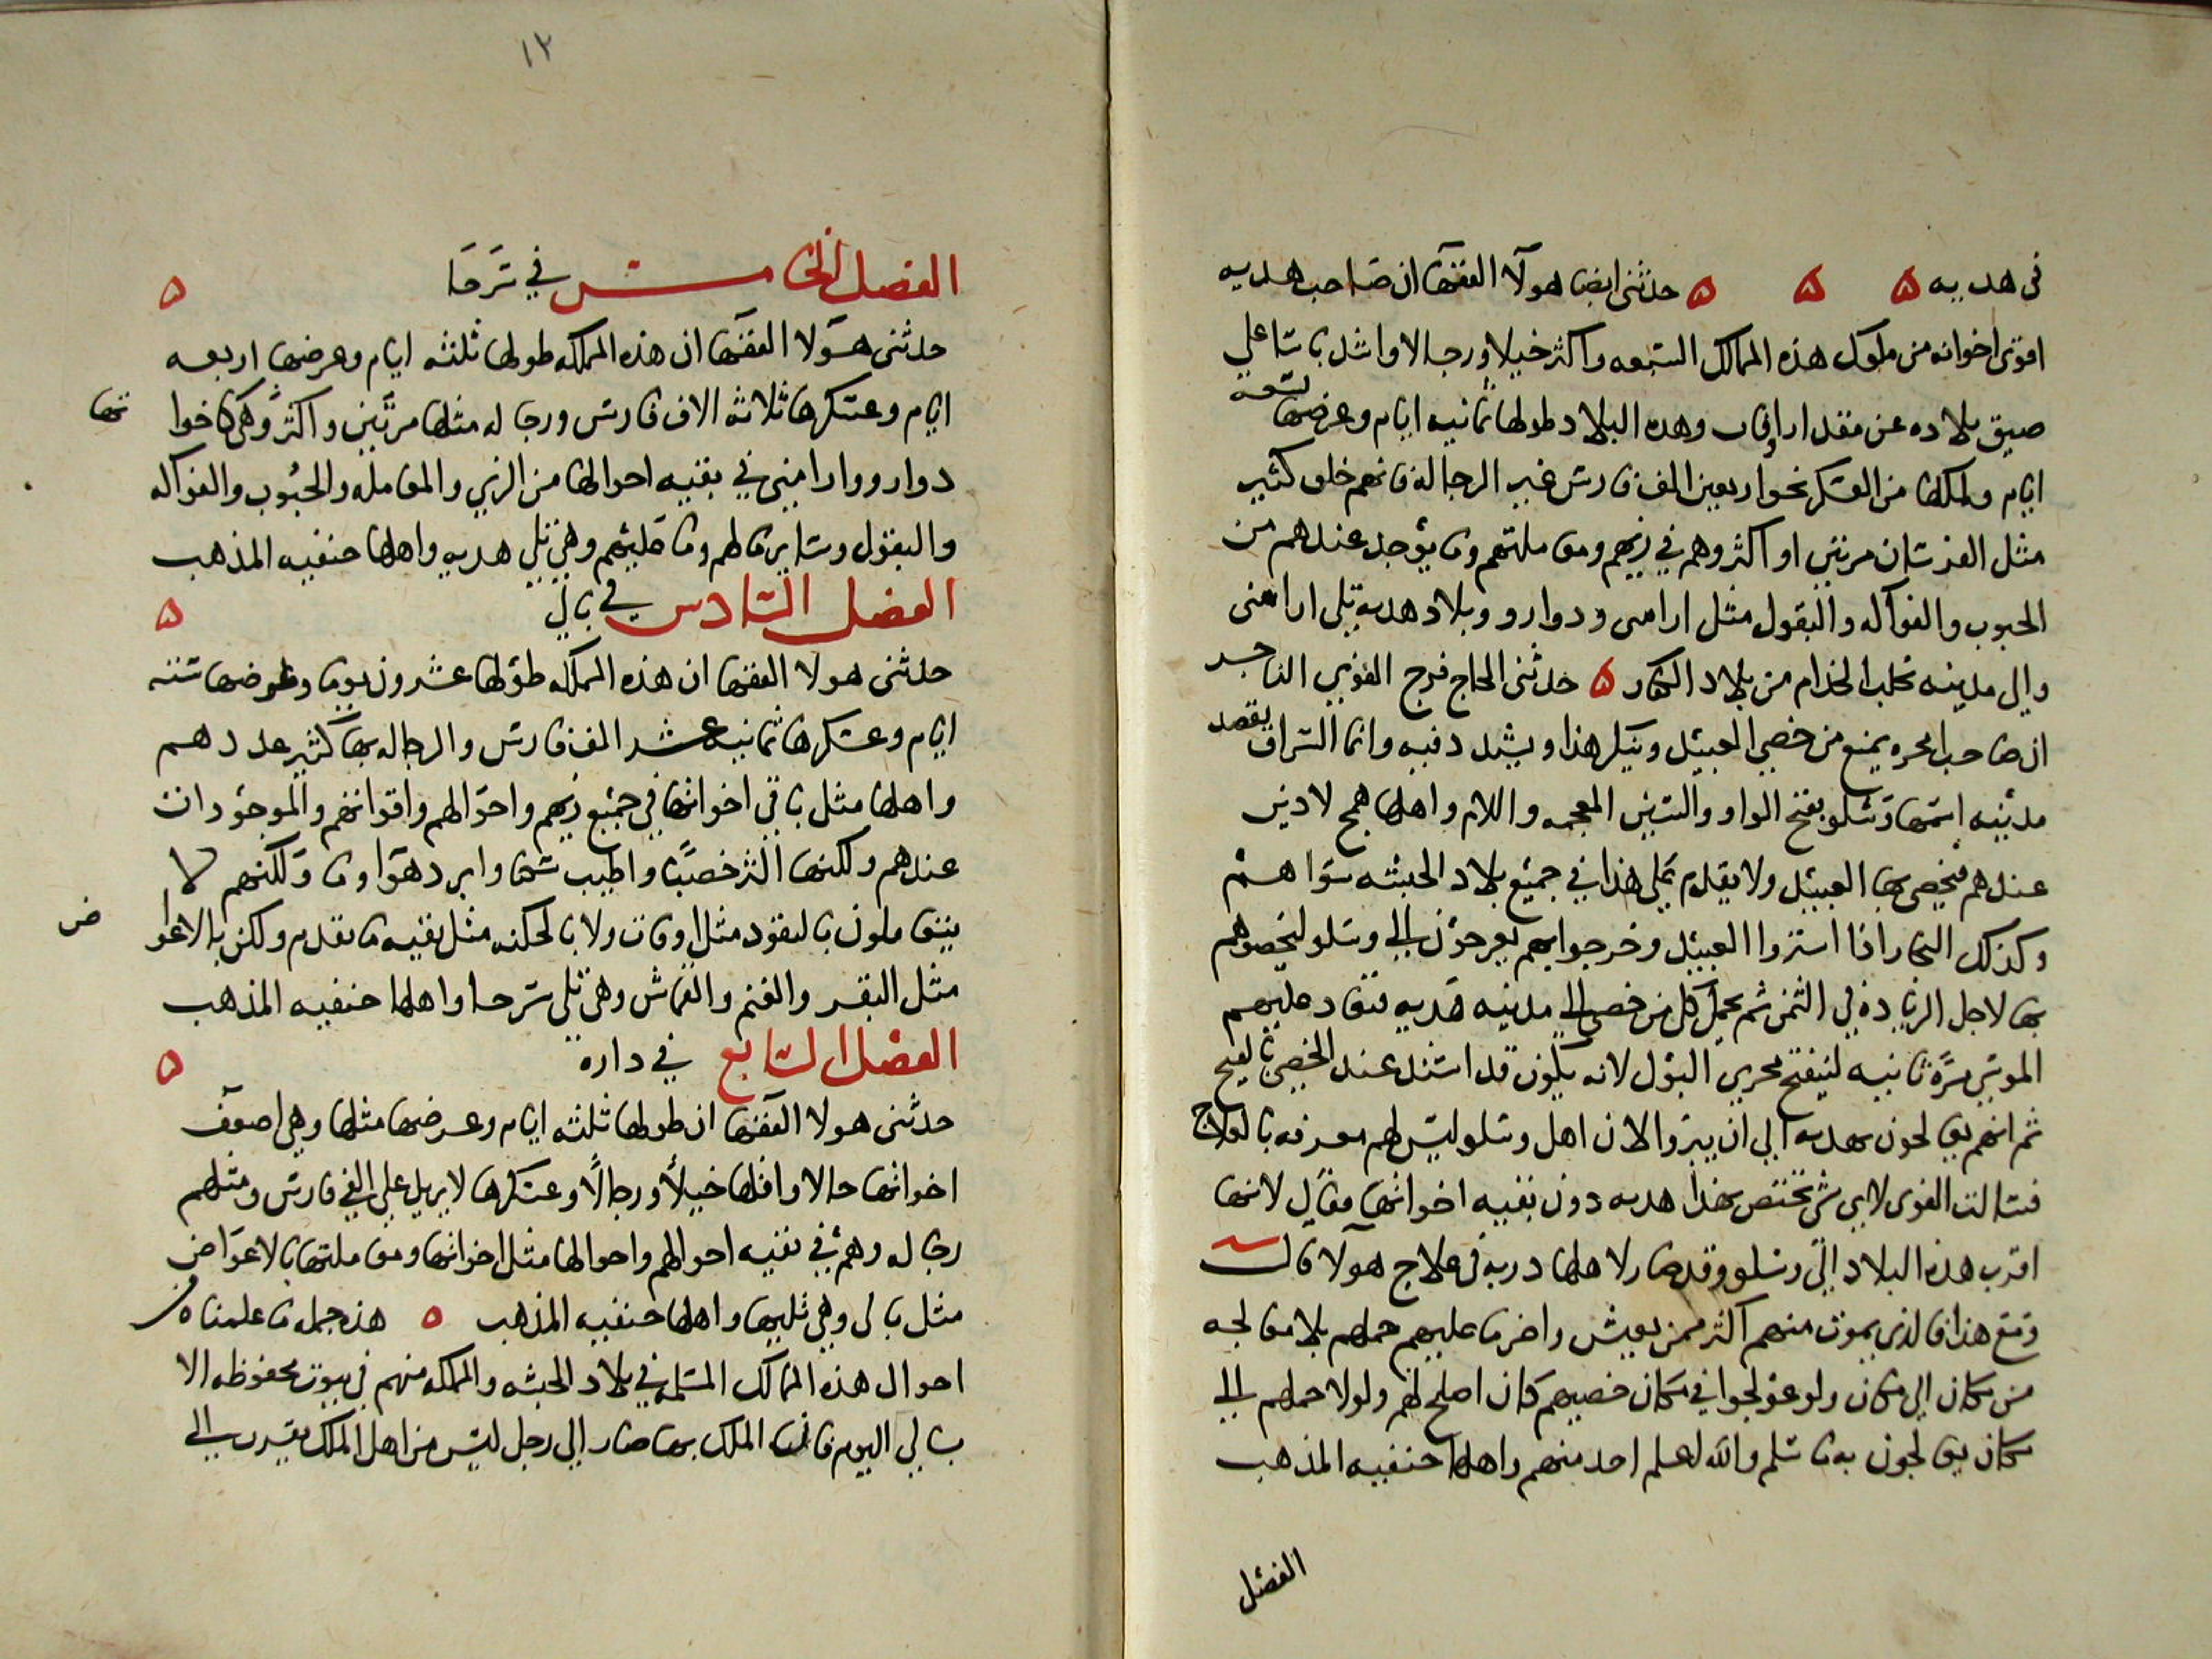 في هديه ه ه ه حدثني ايضا هولآ الفقها ان صاحب هديه
اقوى اخوانه من ملوك هذه الممالك السبعه واكثر خيلا ورجالا واشد باسا علي
ضيق بلاده عن مقدار اوفات وهده البلاد طولها ثمانيه ايام وعرضها تسعه
ايام ولملكها من العسكر نحو اربعين الف فارس غير الرجاله فانهم خلق كثير
مثل الفرسان مرتين او اكثر وهم في زيهم ومعاملتهم وما يوجد عندهم من
الحبوب والفواكه والبقول مثل ارابيني ودوارو وبلاد هديه تلي ارابيني
والي مدينه تجلب الخدام من بلاد الكفار ه حدثني الحاج فرج الفوني التاجر
ان صاحب امحره يمنع من خصي العبيد وينكر هذا ويشدد فيه وانما السراق يقصد
مدينه اسمها وشلو بفتح الواو والشين المعجمه واللام واهلها همج لا دين
عندهم فيخصي بها العبيد ولا يقدم علي هذا في جميع بلاد الحبشه سوا هم
وكذلك التجار اذا اشتروا العبيد وخرجوا بهم يعرجون الى وشلو ليخصوهم
بها لاجل الزياده في الثمن ثم يحمل كل من خصي الى مدينه هديه فتعاد عليهم
الموسي مرة ثانيه لينفتح مجري البول لانه يكون قد استد عند الخصي بالقيح
ثم انهم يعالجون بهديه الي ان يبروا لان اهل وشلو ليس لهم معرفه بالعلاج
فسالت الفوني لاي شي تختص بهذا هديه دون بقيه اخوانها فقال لانها
اقرب هذه البلاد الي وشلو وقد صار لاهلها دربة في علاج هولآ قال
ومع هذا فالذي يموت منهم اكثر ممن يعيش واضر ما عليهم حملهم بلا معالجه
من مكان الي مكان ولو عولجوا في مكان خصيهم كان اصلح لهم ولولا حملهم الي
مكان يعالجون به ما سلم والله اعلم احد منهم واهلها حنفيه المذهب
الفصل
١٢
الفصل الخامس في شرحا ه
حدثني هولا الفقها ان هذه المملكه طولها ثلثه ايام وعرضها اربعه
ايام وعسكرها ثلاثه الاف فارس ورجاله مثلها مرتين واكثر وهي كاخوا تها
دوارو وارابيني في بقيه احوالها من الزي والمعامله والحبوب والفواكه
والبقول وساير مالهم وما عليهم وهي تلي هديه واهلها حنفيه المذهب
الفصل السادس في بالي ه
حدثني هولا الفقها ان هذه المملكه طولها عشرون يوما وعرضها سته
ايام وعسكرها ثمانيه عشر الف فارس والرجاله بها كثير عددهم
واهلها مثل باقي اخوانها في جميع زيهم واحوالهم واقواتهم والموجودات
عندهم ولكنها اكثر خصبًا واطيب سكنا وابرد هوا وما ولكنهم لا
يتعاملون بالنقود مثل اوفات ولا بالحكنه مثل بقيه ما تقدم ولكن بالاعوا ض
مثل البقر والغنم والقماش وهي تلي شرحا واهلها حنفيه المذهب
الفصل السابع في داره ه
حدثني هولا الفقها ان طولها ثلثه ايام وعرضها مثلها وهي اضعف
اخواتها حالا واقلها خيلًا ورجالًا وعسكرها لا يزيد علي الفي فارس ومثلهم
رجاله وهم في بقيه احوالهم واحوالها مثل اخواتها ومعاملتها بالاعواض
مثل بالي وهي تليها واهلها حنفيه المذهب ه هذه جمله ما علمناه من
احوال هذه الممالك المسلمه في بلاد الحبشه والمملكه منهم في بيوت محفوظه الا
بالي اليوم فان الملك بها صار الي رجل ليس من اهل الملك تقرب الي